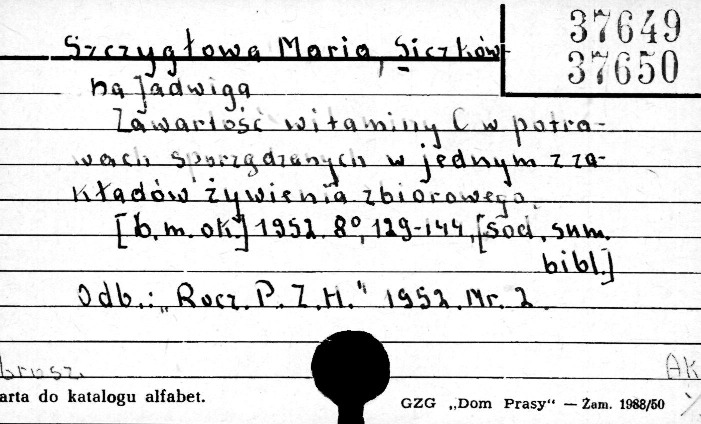 37649
37650
Szczygłowa Maria, Siczków-
na Jadwiga
Zawartość witaminy C w potra-
wach sporządzanych w jednym z za-
kładów żywienia zbiorowego.
[b.m.ok.] 1952. 8°, 129-144, [sod. sum.
bibl.]
Odb.: „Rocz. P. Z. H." 1952. Nr. 2.
brosz.
AK
arta do katalogu alfabet.
GZG „Dom Prasy“ — Zam. 1988/50